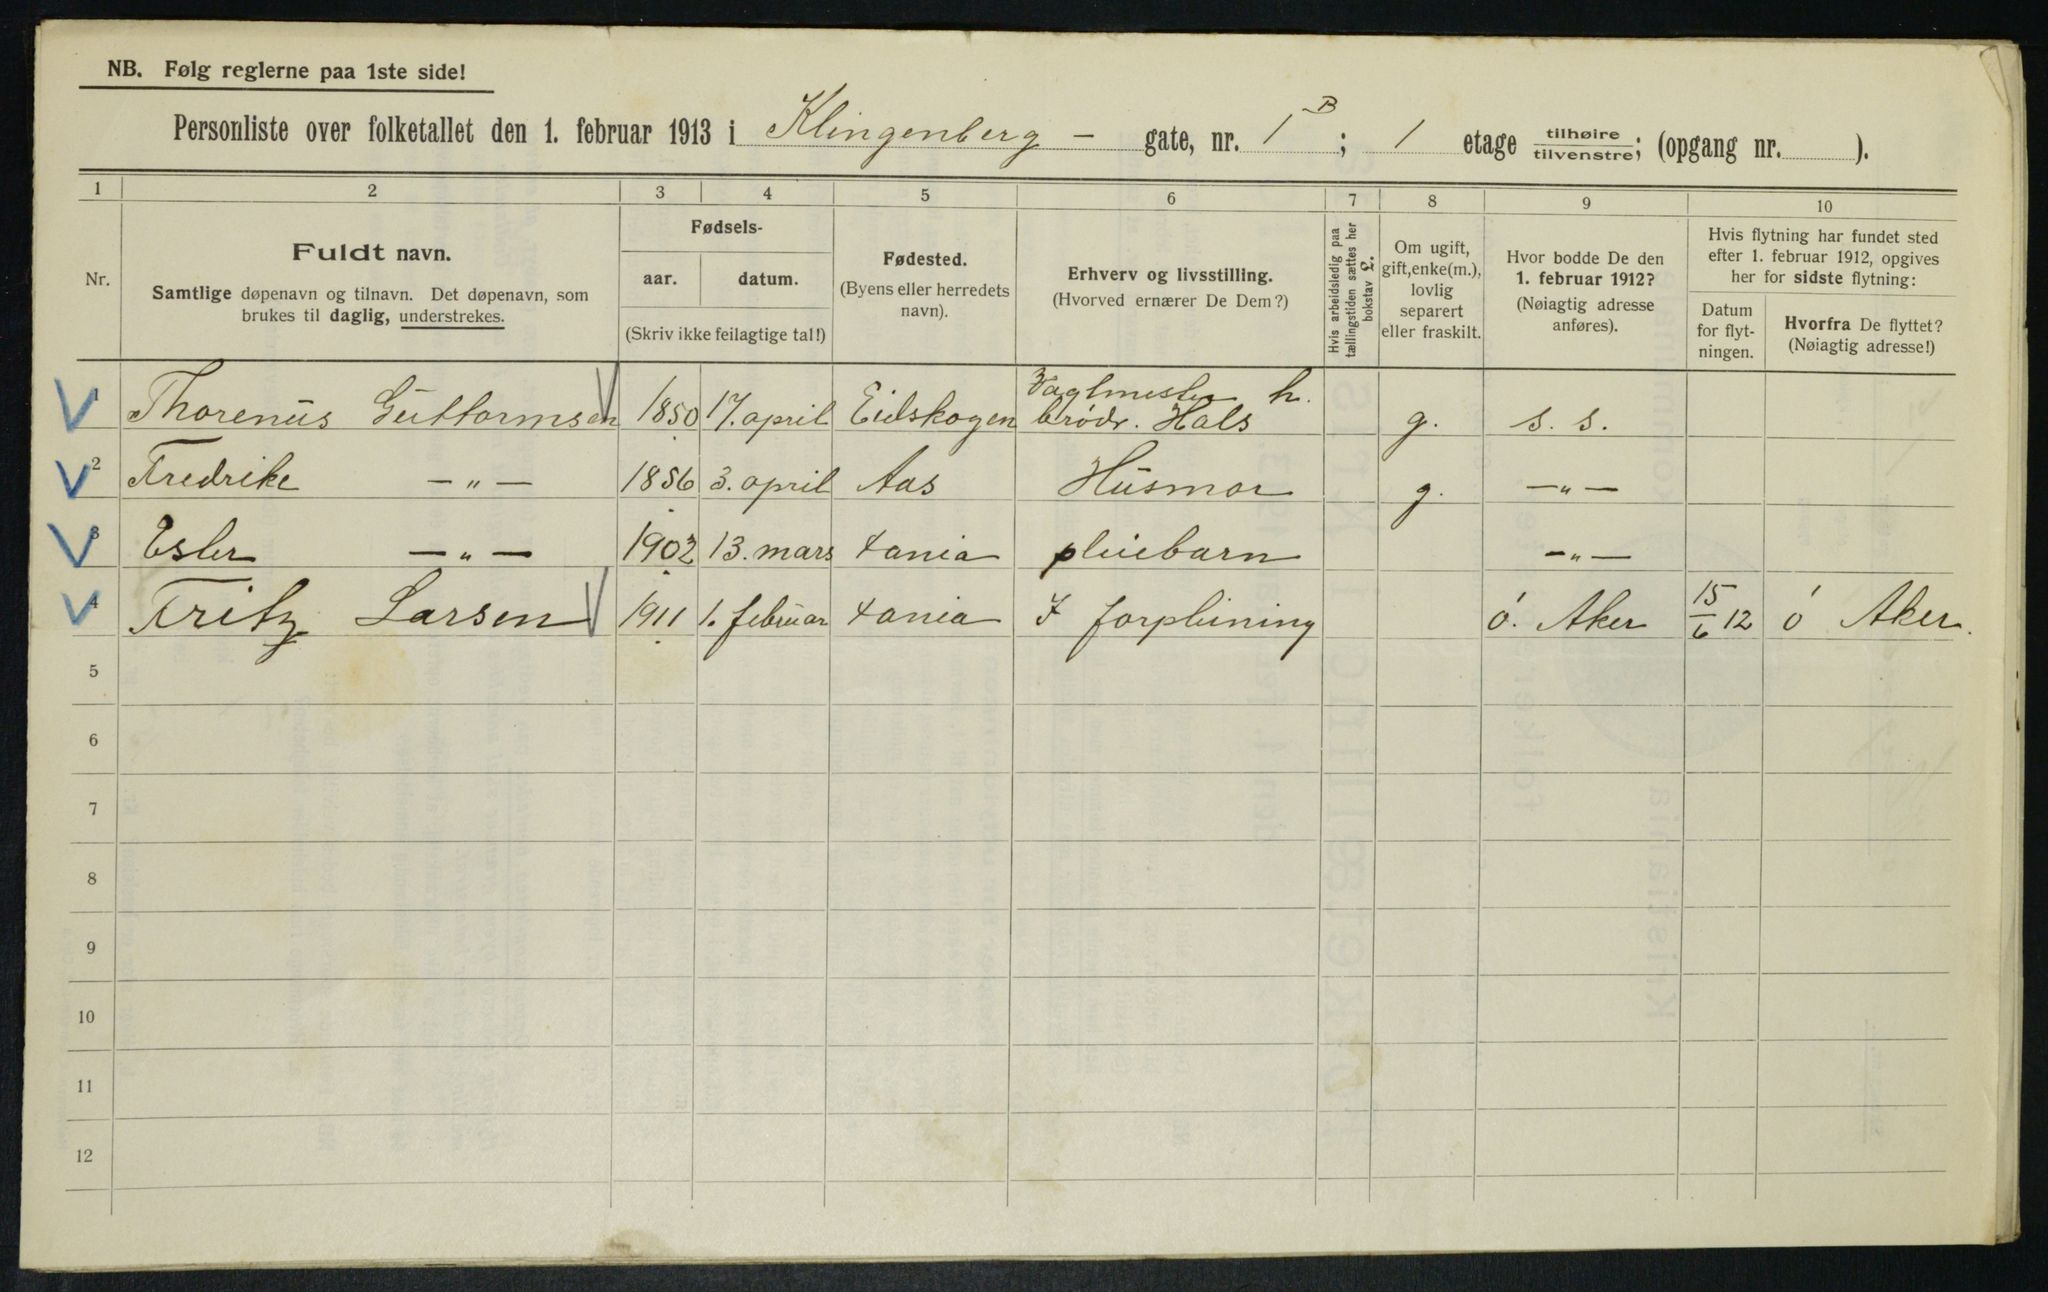 NB. Følg reglerne paa 1ste side!
Personliste over folketallet den 1. februar 1913 i Klingenberg - gate, nr. 1 B; 1 etage tilhøire tilvenstre; (opgang nr. ).
1 2 3 4 5 6 7 8 9 10
Nr.
Fuldt navn.
Samtlige døpenavn og tilnavn. Det døpenavn, som
brukes til daglig, understrekes.
Fødsels-
aar. datum.
(Skriv ikke feilagtige tal!)
Fødested.
(Byens eller herredets
navn).
Erhverv og livsstilling.
(Hvorved ernærer De Dem?)
Hvis arbeidsledig paa
tællingstiden sættes her
bokstav L.
Om ugift,
gift, enke(m.),
lovlig
separert
eller fraskilt.
Hvor bodde De den
1. februar 1912?
(Nøiagtig adresse
anføres).
Hvis flytning har fundet sted
efter 1. februar 1912, opgives
her for sidste flytning:
Datum
for flyt-
ningen.
Hvorfra De flyttet?
(Nøiagtig adresse!)
1 Thorenus Guttormsen 1850 17. april Eidskogen Vagtmester h. brødr. Hals g. s. s.
2 Fredrike — „ — 1856 3. april Aas Husmor g. — „ —
3 Ester — „ — 1902 13. mars +ania pleiebarn — „ —
4 Fritz Larsen 1911 1. februar +ania I forpleining ö. Aker 15/6 12 ö Aker.
5
6
7
8
9
10
11
12